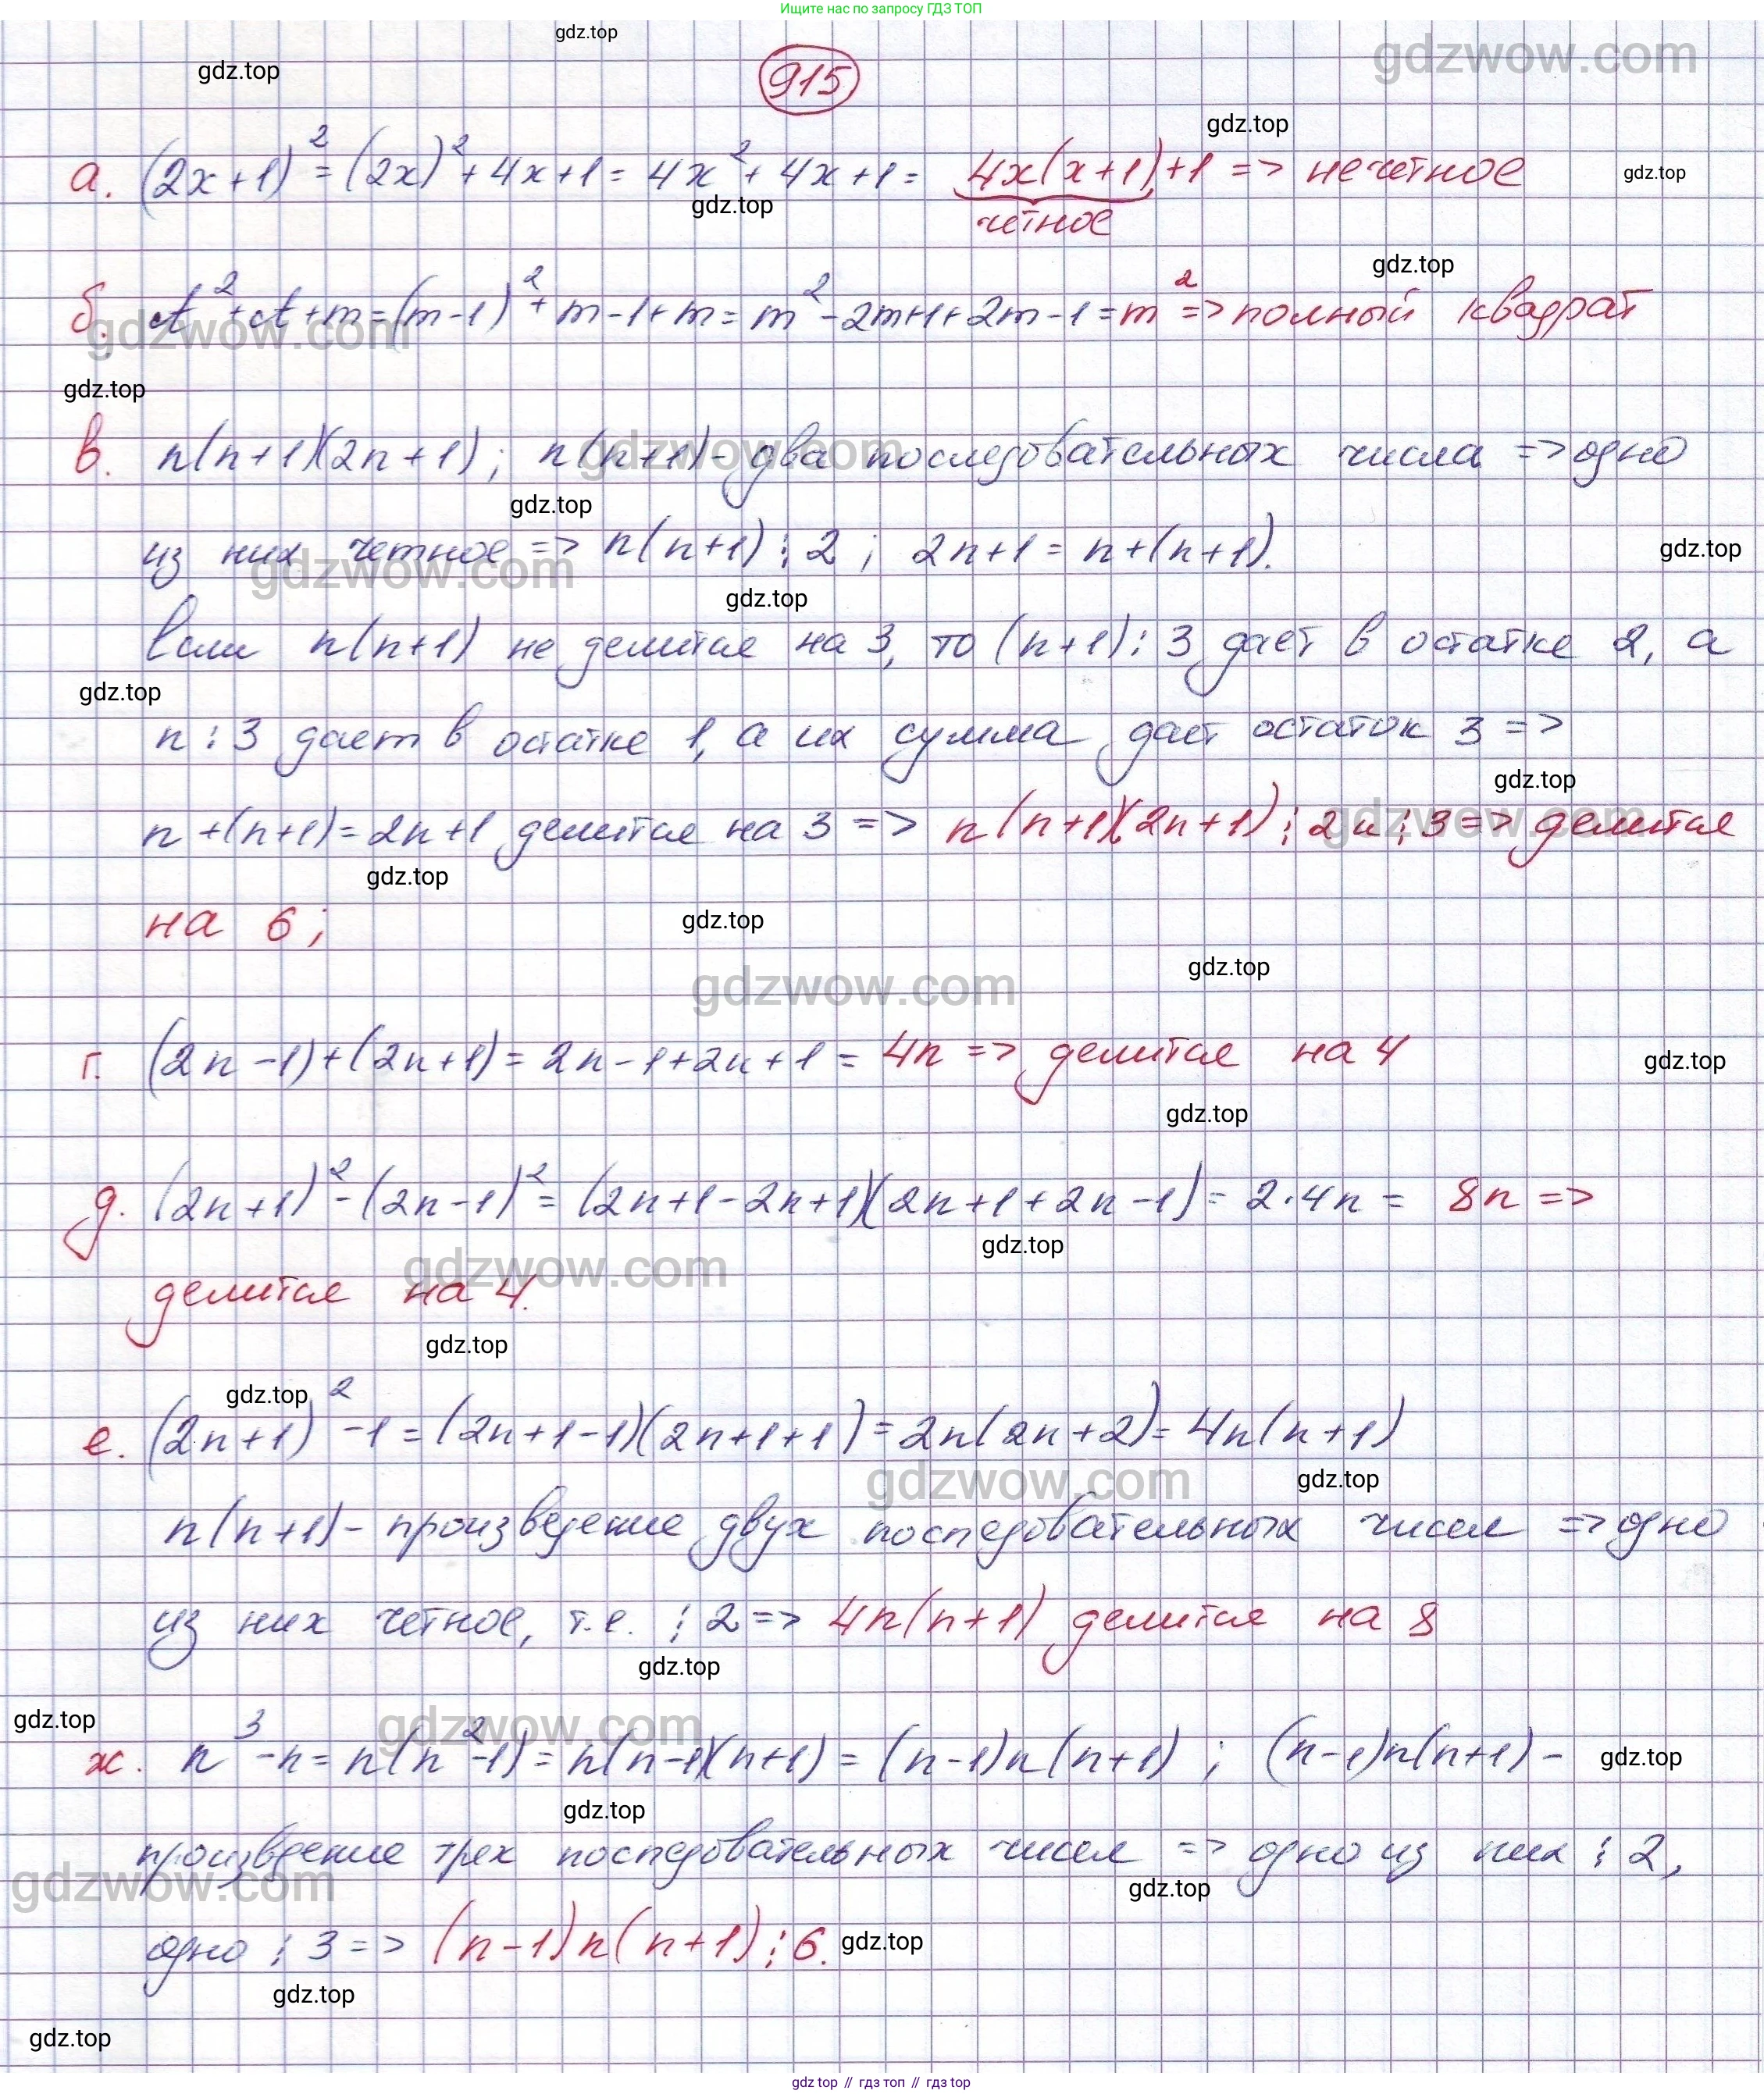 Ищите нас по запросу ГДЗ ТОП
gdz.top
gdzwow.com
gdz.top
915
gdz.top
а. (2x+1)² = (2x)² + 4x+1 = 4x² + 4x+1 = 4x(x+1)+1 => нечётное
gdz.top
gdz.top
чётное
gdz.top
б. ct² + ct + m = (m-1)² + m-1+m = m² - 2m+1+2m-1 = m² => полный квадрат
gdzwow.com
gdz.top
в. n(n+1)(2n+1); n(n+1) - два последовательных числа => одно
gdzwow.com
gdz.top
из них четное => n(n+1)⋮2; 2n+1 = n+(n+1).
gdzwow.com
gdz.top
gdz.top
Если n(n+1) не делится на 3, то (n+1):3 дает в остатке 2, а
gdz.top
n:3 дает в остатке 1, а их сумма дает остаток 3 =>
gdz.top
n+(n+1)=2n+1 делится на 3 => n(n+1)(2n+1)⋮2 и ⋮3 => делится
gdzwow.com
gdz.top
на 6;
gdz.top
gdz.top
gdzwow.com
г. (2n-1)+(2n+1) = 2n-1+2n+1 = 4n => делится на 4
gdz.top
gdz.top
д. (2n+1)² - (2n-1)² = (2n+1-2n+1)(2n+1+2n-1) = 2·4n = 8n =>
gdz.top
gdzwow.com
делится на 4.
gdz.top
gdz.top
е. (2n+1)² - 1 = (2n+1-1)(2n+1+1) = 2n(2n+2) = 4n(n+1)
gdzwow.com
gdz.top
n(n+1) - произведение двух последовательных чисел => одно
из них четное, т.е. ⋮2 => 4n(n+1) делится на 8
gdz.top
gdz.top
gdzwow.com
ж. n³ - n = n(n²-1) = n(n-1)(n+1) = (n-1)n(n+1); (n-1)n(n+1) -
gdz.top
gdz.top
произведение трех последовательных чисел => одно из них ⋮2,
gdzwow.com
gdz.top
одно ⋮3 => (n-1)n(n+1)⋮6.
gdz.top
gdz.top
gdz.top
gdz top // гдз топ // гдз top